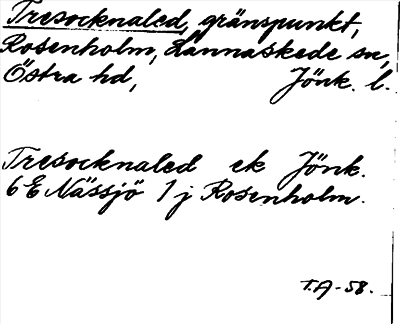 Tresocknaled, gränspunkt,
Rosenholm, Lannaskede sn,
Östra hd, Jönk. l.
Tresocknaled ek Jönk.
6E Nässjö 1j Rosenholm.
T.A-58.